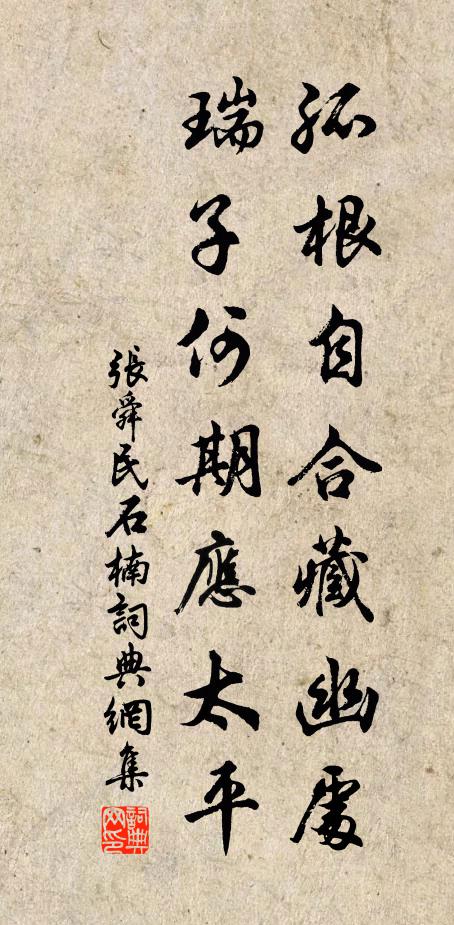 孤根自合藏幽處
瑞子何期應太平
張舜民石楠詞典網集
詞典网印